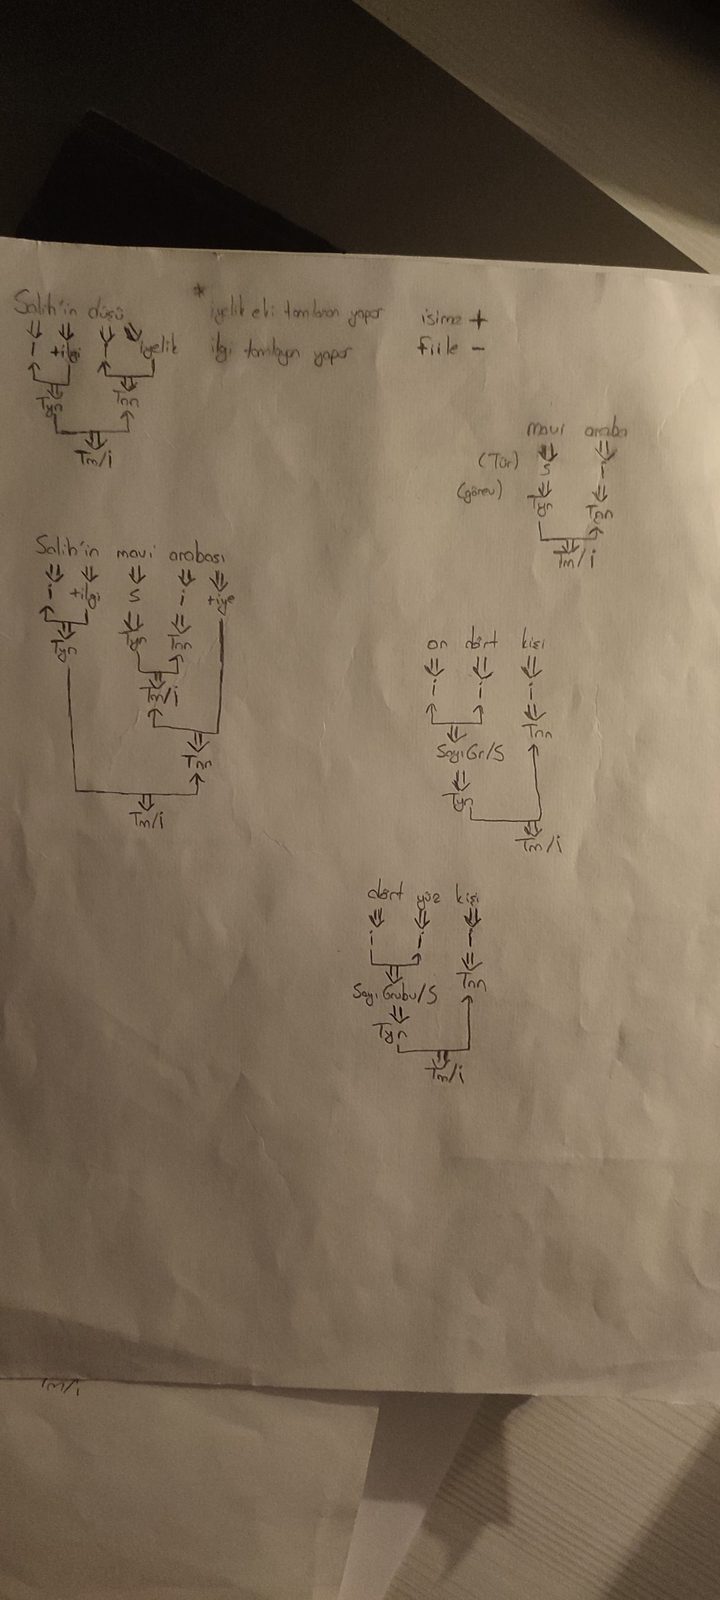 Salih'in düşü
- +ilgi - iyelik
Tyn Tnn
Tm/i
* iyelik eki tamlanan yapar
ilgi tamlayan yapar
isime +
fiile -
mavi araba
(Tür) S i
(görev) Tyn Tnn
Tm/i
Salih'in mavi arabası
i +ilgi S i +iye
Tyn Tyn Tnn
Tm/i
Tnn
Tm/i
on dört kişi
i i i
Tnn
Sayı Gr/S
Tyn
Tm/i
dört yüz kişi
i i i
Tnn
Sayı Grubu/S
Tyn
Tm/i
Tm/i